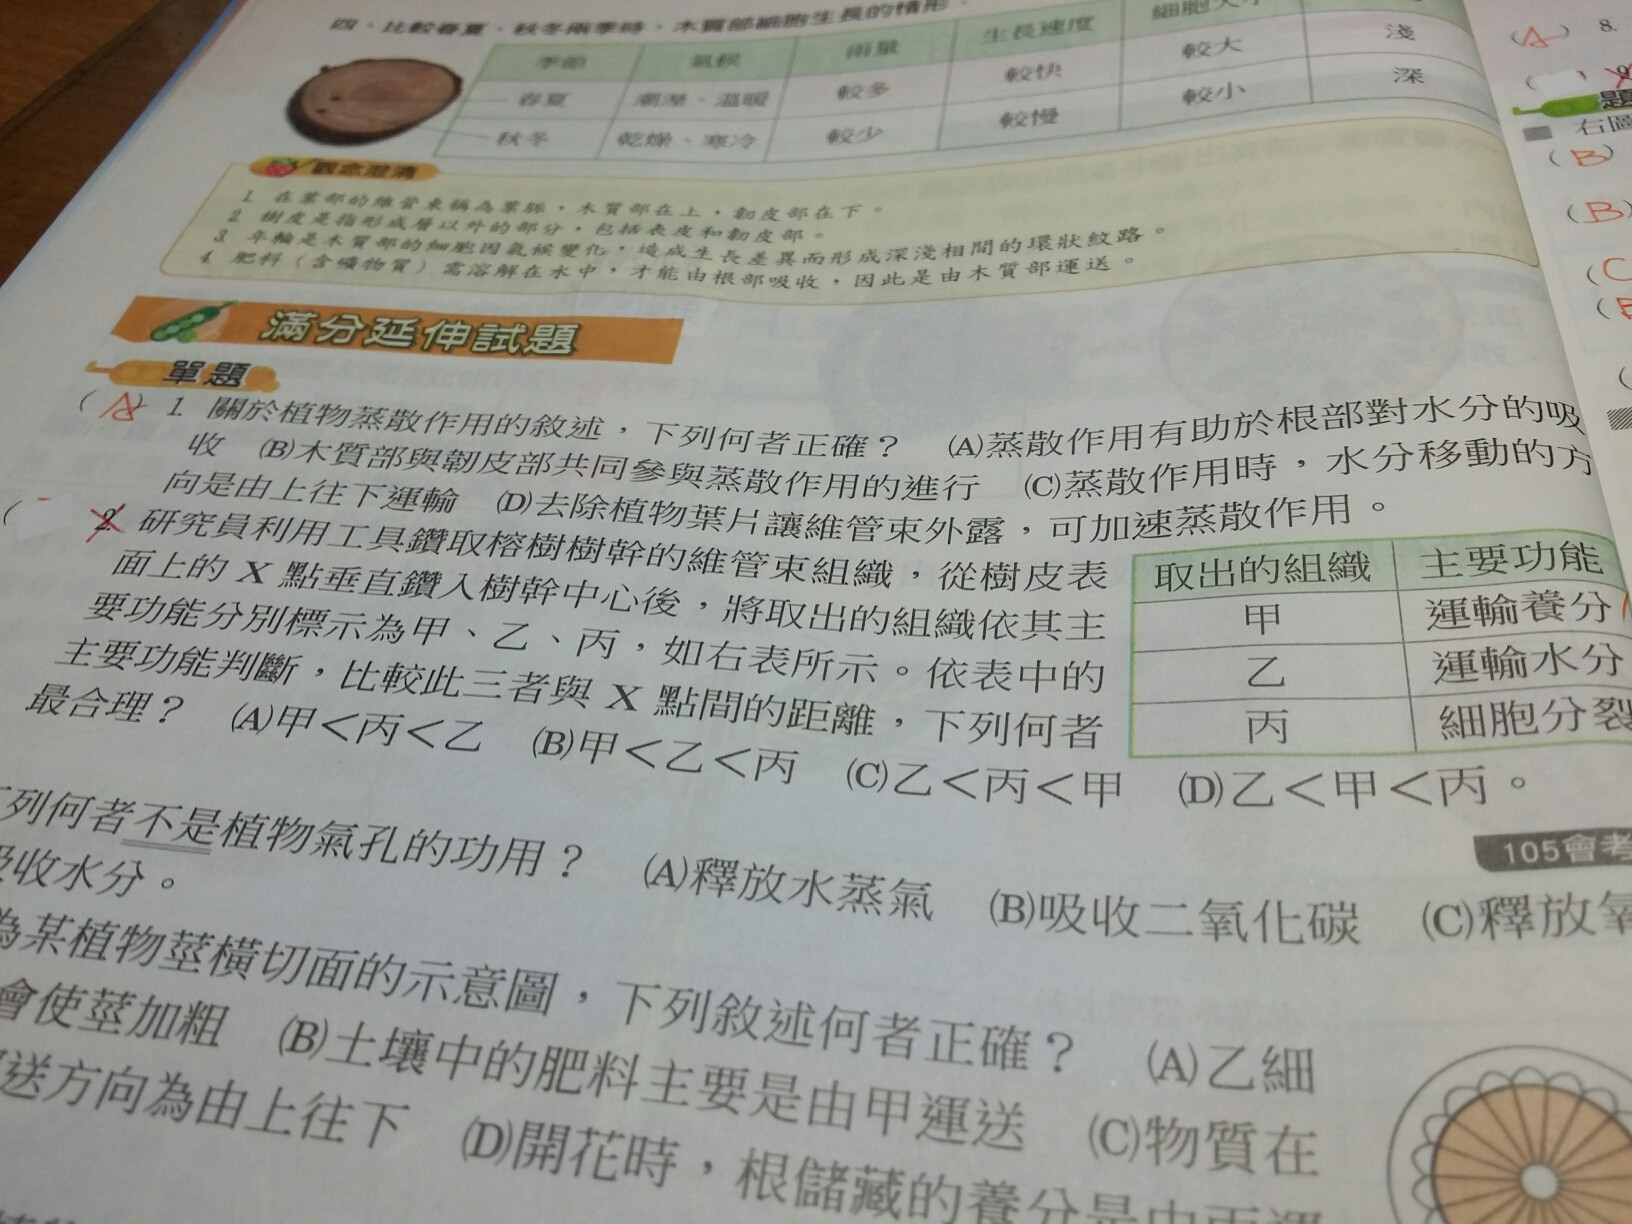 四、比較春夏、秋冬兩季時，木質部細胞生長的情形。
季節 氣候 雨量 生長速度
春夏 潮溼、溫暖 較多 較快 較大 淺
秋冬 乾燥、寒冷 較少 較慢 較小 深
觀念澄清
1. 在葉部的維管束稱為葉脈，木質部在上，韌皮部在下。
2. 樹皮是指形成層以外的部分，包括表皮和韌皮部。
3. 年輪是木質部的細胞因氣候變化，造成生長差異而形成深淺相間的環狀紋路。
4. 肥料（含礦物質）需溶解在水中，才能由根部吸收，因此是由木質部運送。
滿分延伸試題
單題
(A) 1. 關於植物蒸散作用的敘述，下列何者正確？ (A)蒸散作用有助於根部對水分的吸
收 (B)木質部與韌皮部共同參與蒸散作用的進行 (C)蒸散作用時，水分移動的方
向是由上往下運輸 (D)去除植物葉片讓維管束外露，可加速蒸散作用。
( 2. 研究員利用工具鑽取榕樹樹幹的維管束組織，從樹皮表
面上的 X 點垂直鑽入樹幹中心後，將取出的組織依其主
要功能分別標示為甲、乙、丙，如右表所示。依表中的
主要功能判斷，比較此三者與 X 點間的距離，下列何者
最合理？ (A)甲＜丙＜乙 (B)甲＜乙＜丙 (C)乙＜丙＜甲 (D)乙＜甲＜丙。
取出的組織 主要功能
甲 運輸養分
乙 運輸水分
丙 細胞分裂
105會考
列何者不是植物氣孔的功用？ (A)釋放水蒸氣 (B)吸收二氧化碳 (C)釋放氧
收水分。
為某植物莖橫切面的示意圖，下列敘述何者正確？ (A)乙細
會使莖加粗 (B)土壤中的肥料主要是由甲運送 (C)物質在
送方向為由上往下 (D)開花時，根儲藏的養分是由丙運
(A) 8.
題
右圖
(B)
(B)
(C